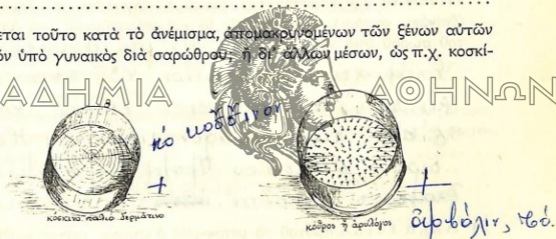 εται τοῦτο κατὰ τὸ ἀνέμισμα, απομακρυνομένων τῶν ξένων αὐτῶν
όν ὑπὸ γυναικὸς διὰ σαρώθρου, ἢ δι' ἄλλων μέσων, ὡς π.χ. κοσκί-
ΑΔΗΜΙΑ ΑΘΗΝΩΝ
κόσκινο παλιὸ δερμάτινο
κοῦρος ἢ ἀρυλόγος